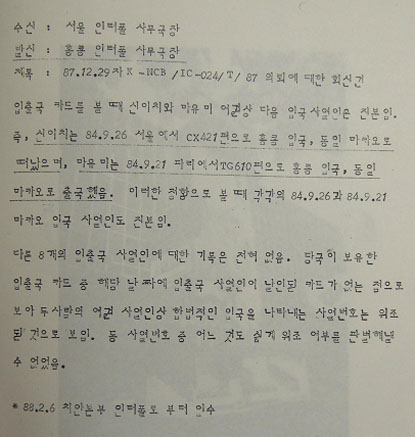 수신 : 서울 인터폴 사무국장
발신 : 홍콩 인터폴 사무국장
제목 : 87.12.29자 K-NCB/IC-024/T/ 87 의뢰에 대한 회신건
입출국 카드를 볼 때 신이치와 마유미 여권상 다음 입국 사열인은 진본임.
즉, 신이치는 84.9.26 서울에서 CX421편으로 홍콩 입국, 동일 마카오로
떠났으며, 마유미는 84.9.21 파리에서TG610편으로 홍콩 입국, 동일
마카오로 출국했음. 이러한 정황으로 볼 때 각각의 84.9.26과 84.9.21
마카오 입국 사열인도 진본임.
다른 8개의 입출국 사열인에 대한 기록은 전혀 없음. 당국이 보유한
입출국 카드 중 해당 날짜에 입출국 사열인이 날인된 카드가 없는 점으로
보아 두사람의 여권 사열인상 합법적인 입국을 나타내는 사열번호는 위조
된 것으로 보임. 동 사열번호 중 어느 것도 쉽게 위조 여부를 판별해낼
수 없었음.
* 88.2.6 치안본부 인터폴로 부터 인수